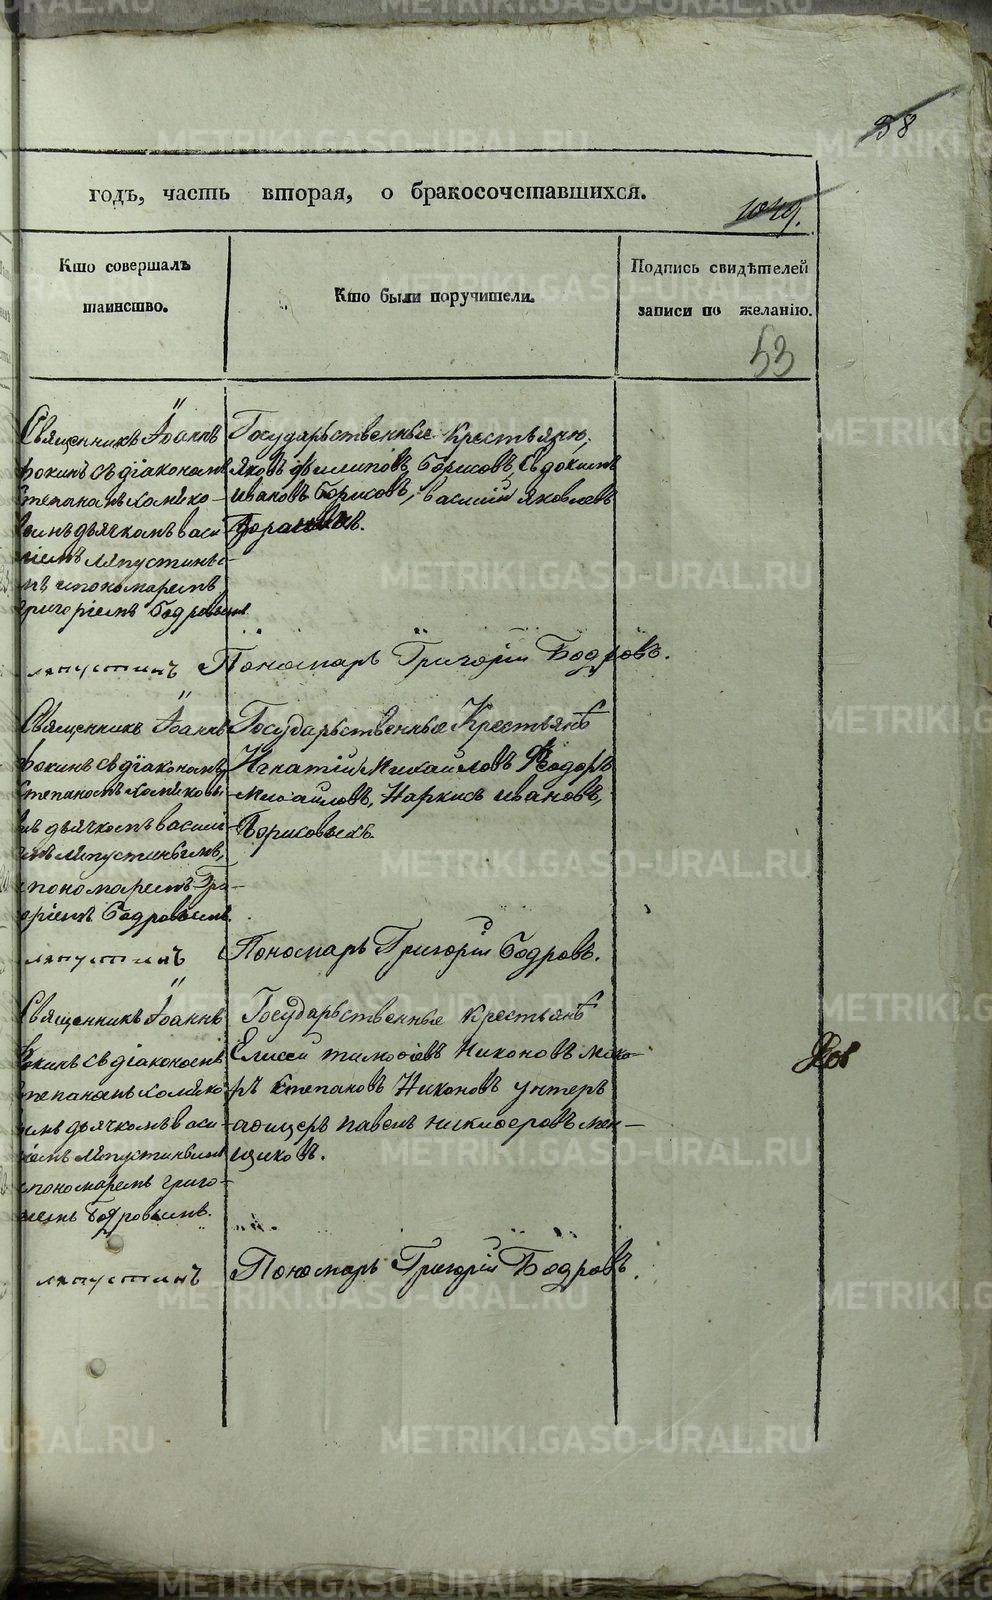 38
годъ, часть вторая, о бракосочетавшихся.
1049.
Кто совершалъ
таинство.
Кто были поручители.
Подпись свидѣтелей
записи по желанію.
53
Священникъ Іоаннъ
Фокинъ съ діакономъ
Степаномъ Хомяко-
вымъ дьячкомъ Васи-
ліемъ Ляпустины-
мъ и пономаремъ
Григоріемъ Бодровымъ
Государьственные Крестьяне,
Яковъ Филиповъ Борисовъ, Евдокимъ
Ивановъ Борисовъ, Василій Яковлевъ
Ляпустинъ Пономарь Григорій Бодровъ.
Священникъ Іоаннъ
Фокинъ съ діакономъ
Степаномъ Хомяковы-
мъ дьячкомъ Василі-
емъ Ляпустинымъ,
и пономаремъ Гри-
горіемъ Бодровымъ.
Государьственные Крестьянѣ
Игнатій Михаиловъ Ѳедоръ
Михаиловъ, Наркисъ Ивановъ,
Борисовы
Ляпустинъ Пономарь Григорій Бодровъ.
Священникъ Іоаннъ
Фокинъ съ діакономъ
Степаномъ Хомяко-
вымъ дьячкомъ Васи-
ліемъ Ляпустинымъ
и пономаремъ Григо-
ріемъ Бодровымъ.
Государьственные крестьянѣ
Елисей Тимоѳѣевъ Никоновъ Мака-
ръ Степановъ Никоновъ унтеръ
афицеръ Павелъ Никифоровъ Мен-
щиковъ.
Ляпустинъ Пономарь Григорій Бодровъ.
METRIKI.GASO-URAL.RU